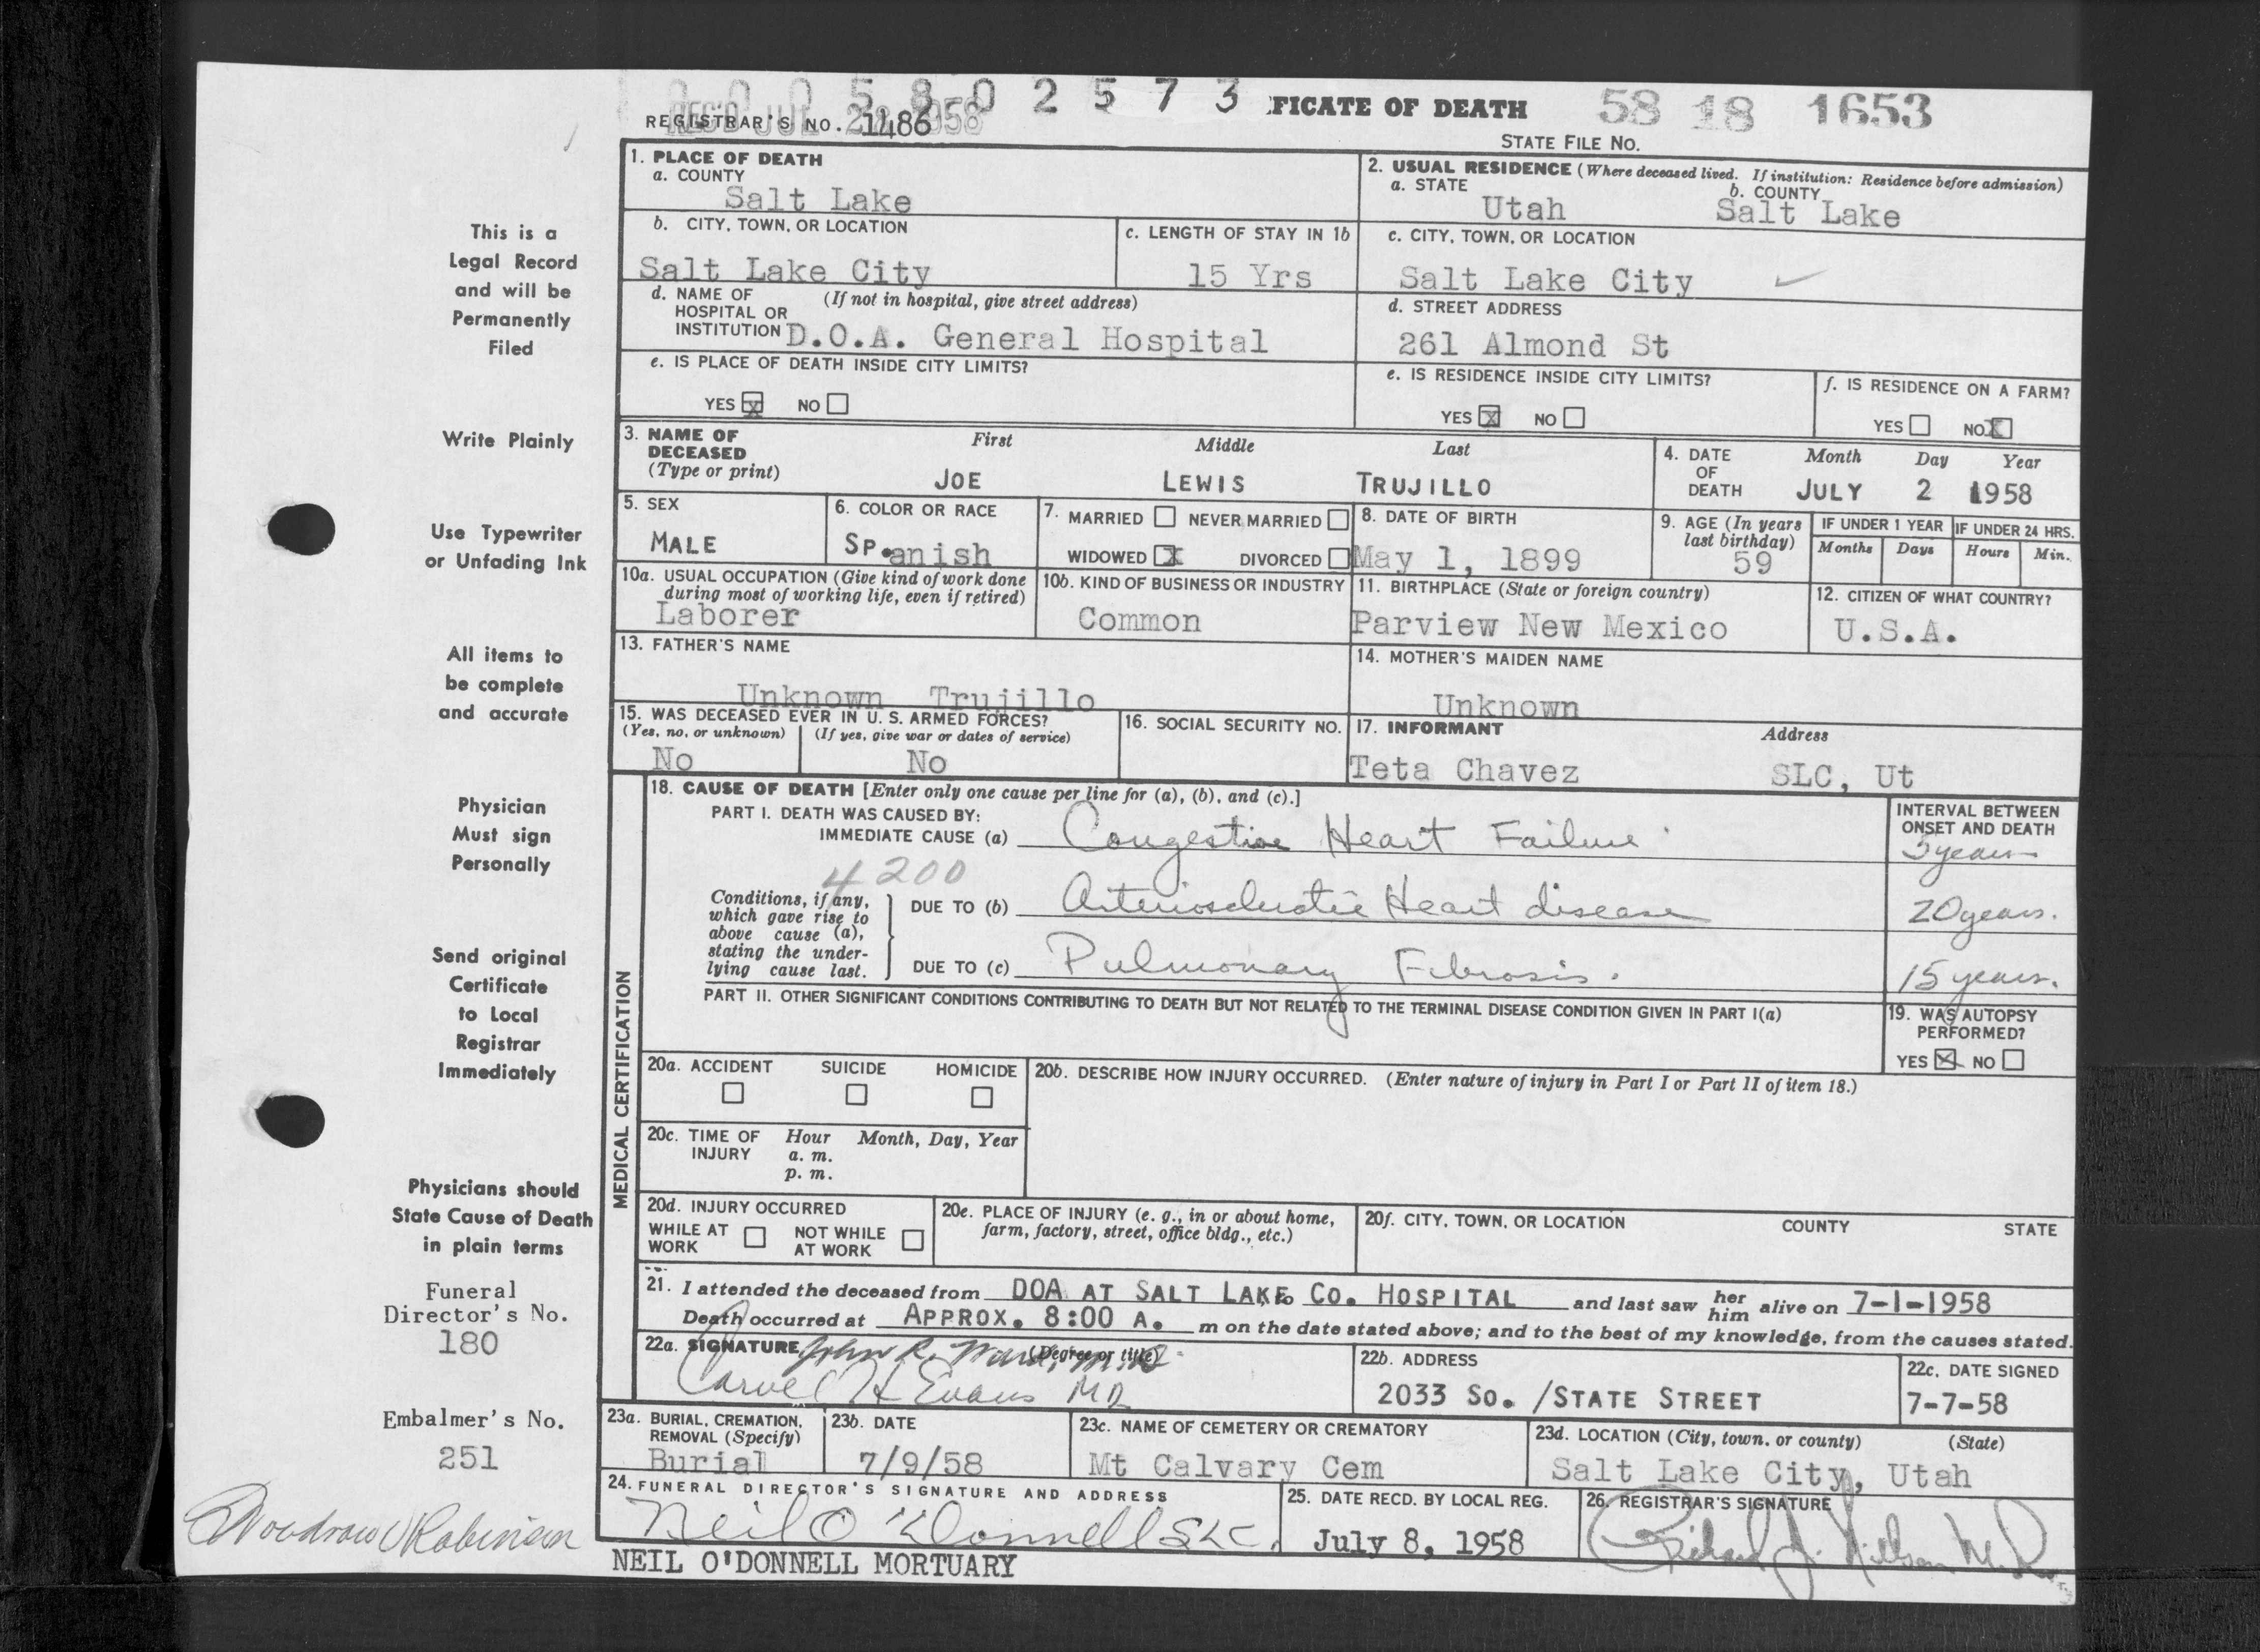 0 0 0 5 8 0 2 5 7 3 FICATE OF DEATH 58 18 1653
REC'D JUL 1958
REGISTRAR'S NO. 1486
STATE FILE NO.
1. PLACE OF DEATH
a. COUNTY
Salt Lake
2. USUAL RESIDENCE (Where deceased lived. If institution: Residence before admission)
a. STATE b. COUNTY
Utah Salt Lake
b. CITY, TOWN, OR LOCATION
Salt Lake City
c. LENGTH OF STAY IN 1b
15 Yrs
c. CITY, TOWN, OR LOCATION
Salt Lake City
d. NAME OF HOSPITAL OR INSTITUTION (If not in hospital, give street address)
D.O.A. General Hospital
d. STREET ADDRESS
261 Almond St
e. IS PLACE OF DEATH INSIDE CITY LIMITS?
YES X NO
e. IS RESIDENCE INSIDE CITY LIMITS?
YES X NO
f. IS RESIDENCE ON A FARM?
YES NO X
3. NAME OF DECEASED (Type or print)
First Middle Last
JOE LEWIS TRUJILLO
4. DATE OF DEATH
Month Day Year
JULY 2 1958
5. SEX
MALE
6. COLOR OR RACE
SP.anish
7. MARRIED NEVER MARRIED
WIDOWED X DIVORCED
8. DATE OF BIRTH
May 1, 1899
9. AGE (In years last birthday)
59
IF UNDER 1 YEAR
Months Days
IF UNDER 24 HRS.
Hours Min.
10a. USUAL OCCUPATION (Give kind of work done during most of working life, even if retired)
Laborer
10b. KIND OF BUSINESS OR INDUSTRY
Common
11. BIRTHPLACE (State or foreign country)
Parview New Mexico
12. CITIZEN OF WHAT COUNTRY?
U.S.A.
13. FATHER'S NAME
Unknown Trujillo
14. MOTHER'S MAIDEN NAME
Unknown
15. WAS DECEASED EVER IN U. S. ARMED FORCES?
(Yes, no, or unknown) (If yes, give war or dates of service)
No No
16. SOCIAL SECURITY NO.
17. INFORMANT Address
Teta Chavez SLC, Ut
MEDICAL CERTIFICATION
18. CAUSE OF DEATH [Enter only one cause per line for (a), (b), and (c).]
INTERVAL BETWEEN ONSET AND DEATH
PART I. DEATH WAS CAUSED BY:
IMMEDIATE CAUSE (a) Congestive Heart Failure 5 years
4200
Conditions, if any, which gave rise to above cause (a), stating the underlying cause last.
DUE TO (b) Arteriosclerotic Heart disease 20 years.
DUE TO (c) Pulmonary Fibrosis. 15 years.
PART II. OTHER SIGNIFICANT CONDITIONS CONTRIBUTING TO DEATH BUT NOT RELATED TO THE TERMINAL DISEASE CONDITION GIVEN IN PART I(a)
19. WAS AUTOPSY PERFORMED?
YES X NO
20a. ACCIDENT SUICIDE HOMICIDE
20b. DESCRIBE HOW INJURY OCCURRED. (Enter nature of injury in Part I or Part II of item 18.)
20c. TIME OF INJURY Hour Month, Day, Year
a. m.
p. m.
20d. INJURY OCCURRED
WHILE AT WORK NOT WHILE AT WORK
20e. PLACE OF INJURY (e. g., in or about home, farm, factory, street, office bldg., etc.)
20f. CITY, TOWN, OR LOCATION COUNTY STATE
21. I attended the deceased from DOA AT SALT LAKE to CO. HOSPITAL and last saw her him alive on 7-1-1958
Death occurred at APPROX. 8:00 A. m on the date stated above; and to the best of my knowledge, from the causes stated.
22a. SIGNATURE (Degree or title)
John R. Ward, M.D.
Carvel H Evans MD
22b. ADDRESS
2033 SO. /STATE STREET
22c. DATE SIGNED
7-7-58
23a. BURIAL, CREMATION, REMOVAL (Specify)
Burial
23b. DATE
7/9/58
23c. NAME OF CEMETERY OR CREMATORY
Mt Calvary Cem
23d. LOCATION (City, town, or county) (State)
Salt Lake City, Utah
24. FUNERAL DIRECTOR'S SIGNATURE AND ADDRESS
Neil O'Donnell SLC.
NEIL O'DONNELL MORTUARY
25. DATE RECD. BY LOCAL REG.
July 8, 1958
26. REGISTRAR'S SIGNATURE
Richard J. Nelson M.D.
This is a
Legal Record
and will be
Permanently
Filed
Write Plainly
Use Typewriter
or Unfading Ink
All items to
be complete
and accurate
Physician
Must sign
Personally
Send original
Certificate
to Local
Registrar
Immediately
Physicians should
State Cause of Death
in plain terms
Funeral
Director's No.
180
Embalmer's No.
251
Woodrow Robinson